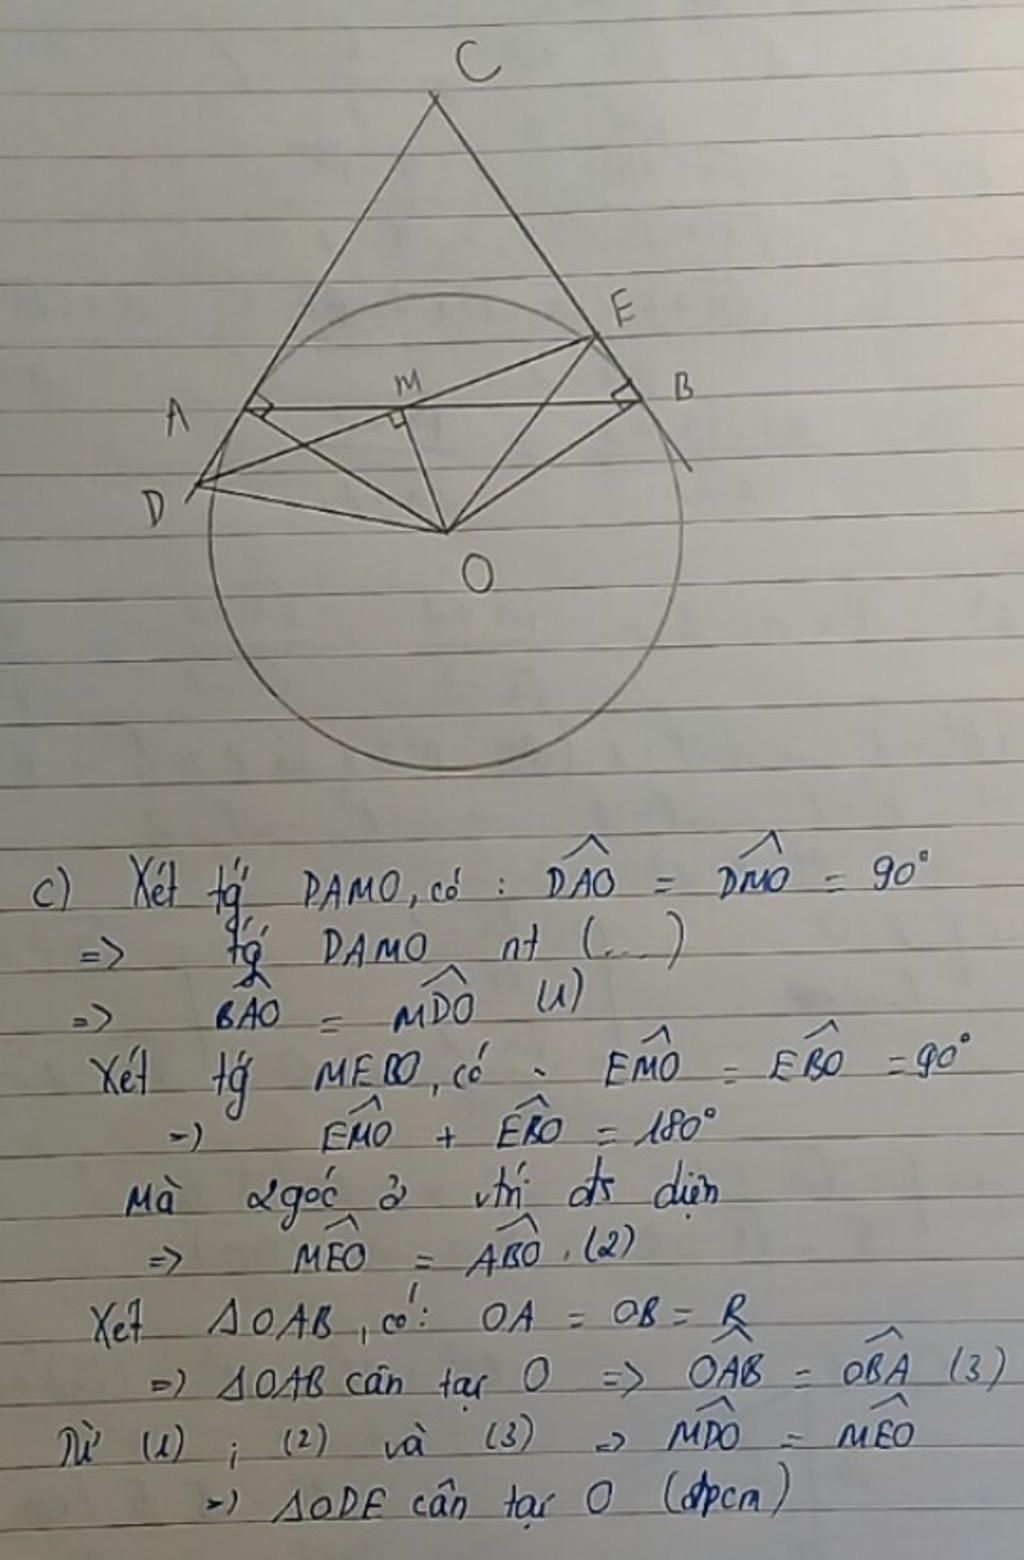 C
E
M
A
B
D
O
c) Xét tg DAMO, có : DAO = DMO = 90°
=> tg DAMO nt (...)
=> BAO = MDO (1)
Xét tg MEBO, có : EMO = EBO = 90°
=> EMO + EBO = 180°
Mà 2 góc ở vtrí đối diện
=> MEO = ABO . (2)
Xét ΔOAB, có : OA = OB = R
=> ΔOAB cân tại O => OAB = OBA (3)
Từ (1) ; (2) và (3) => MDO = MEO
=> ΔODE cân tại O (đpcm)